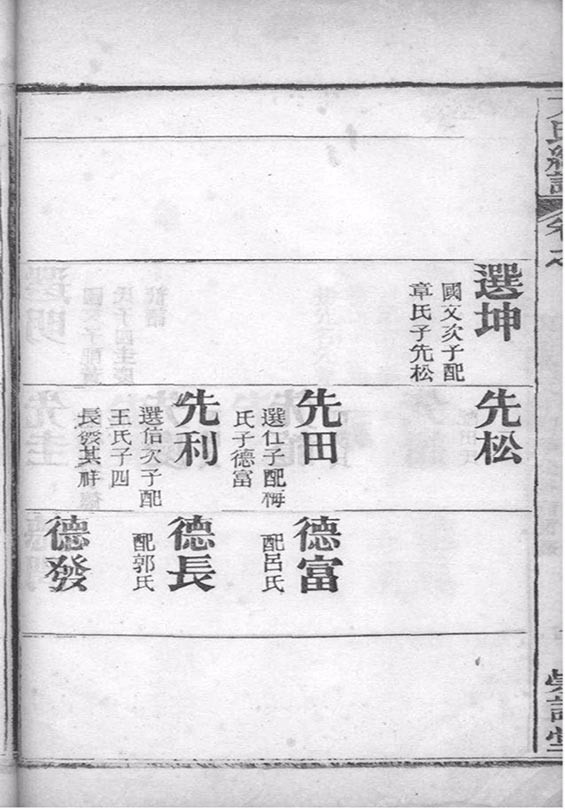 選坤
國文次子配
章氏子先松
先松
先田
選仕子配梅
氏子德富
先利
選信次子配
王氏子四
長發其祥
德富
配呂氏
德長
配郭氏
德發